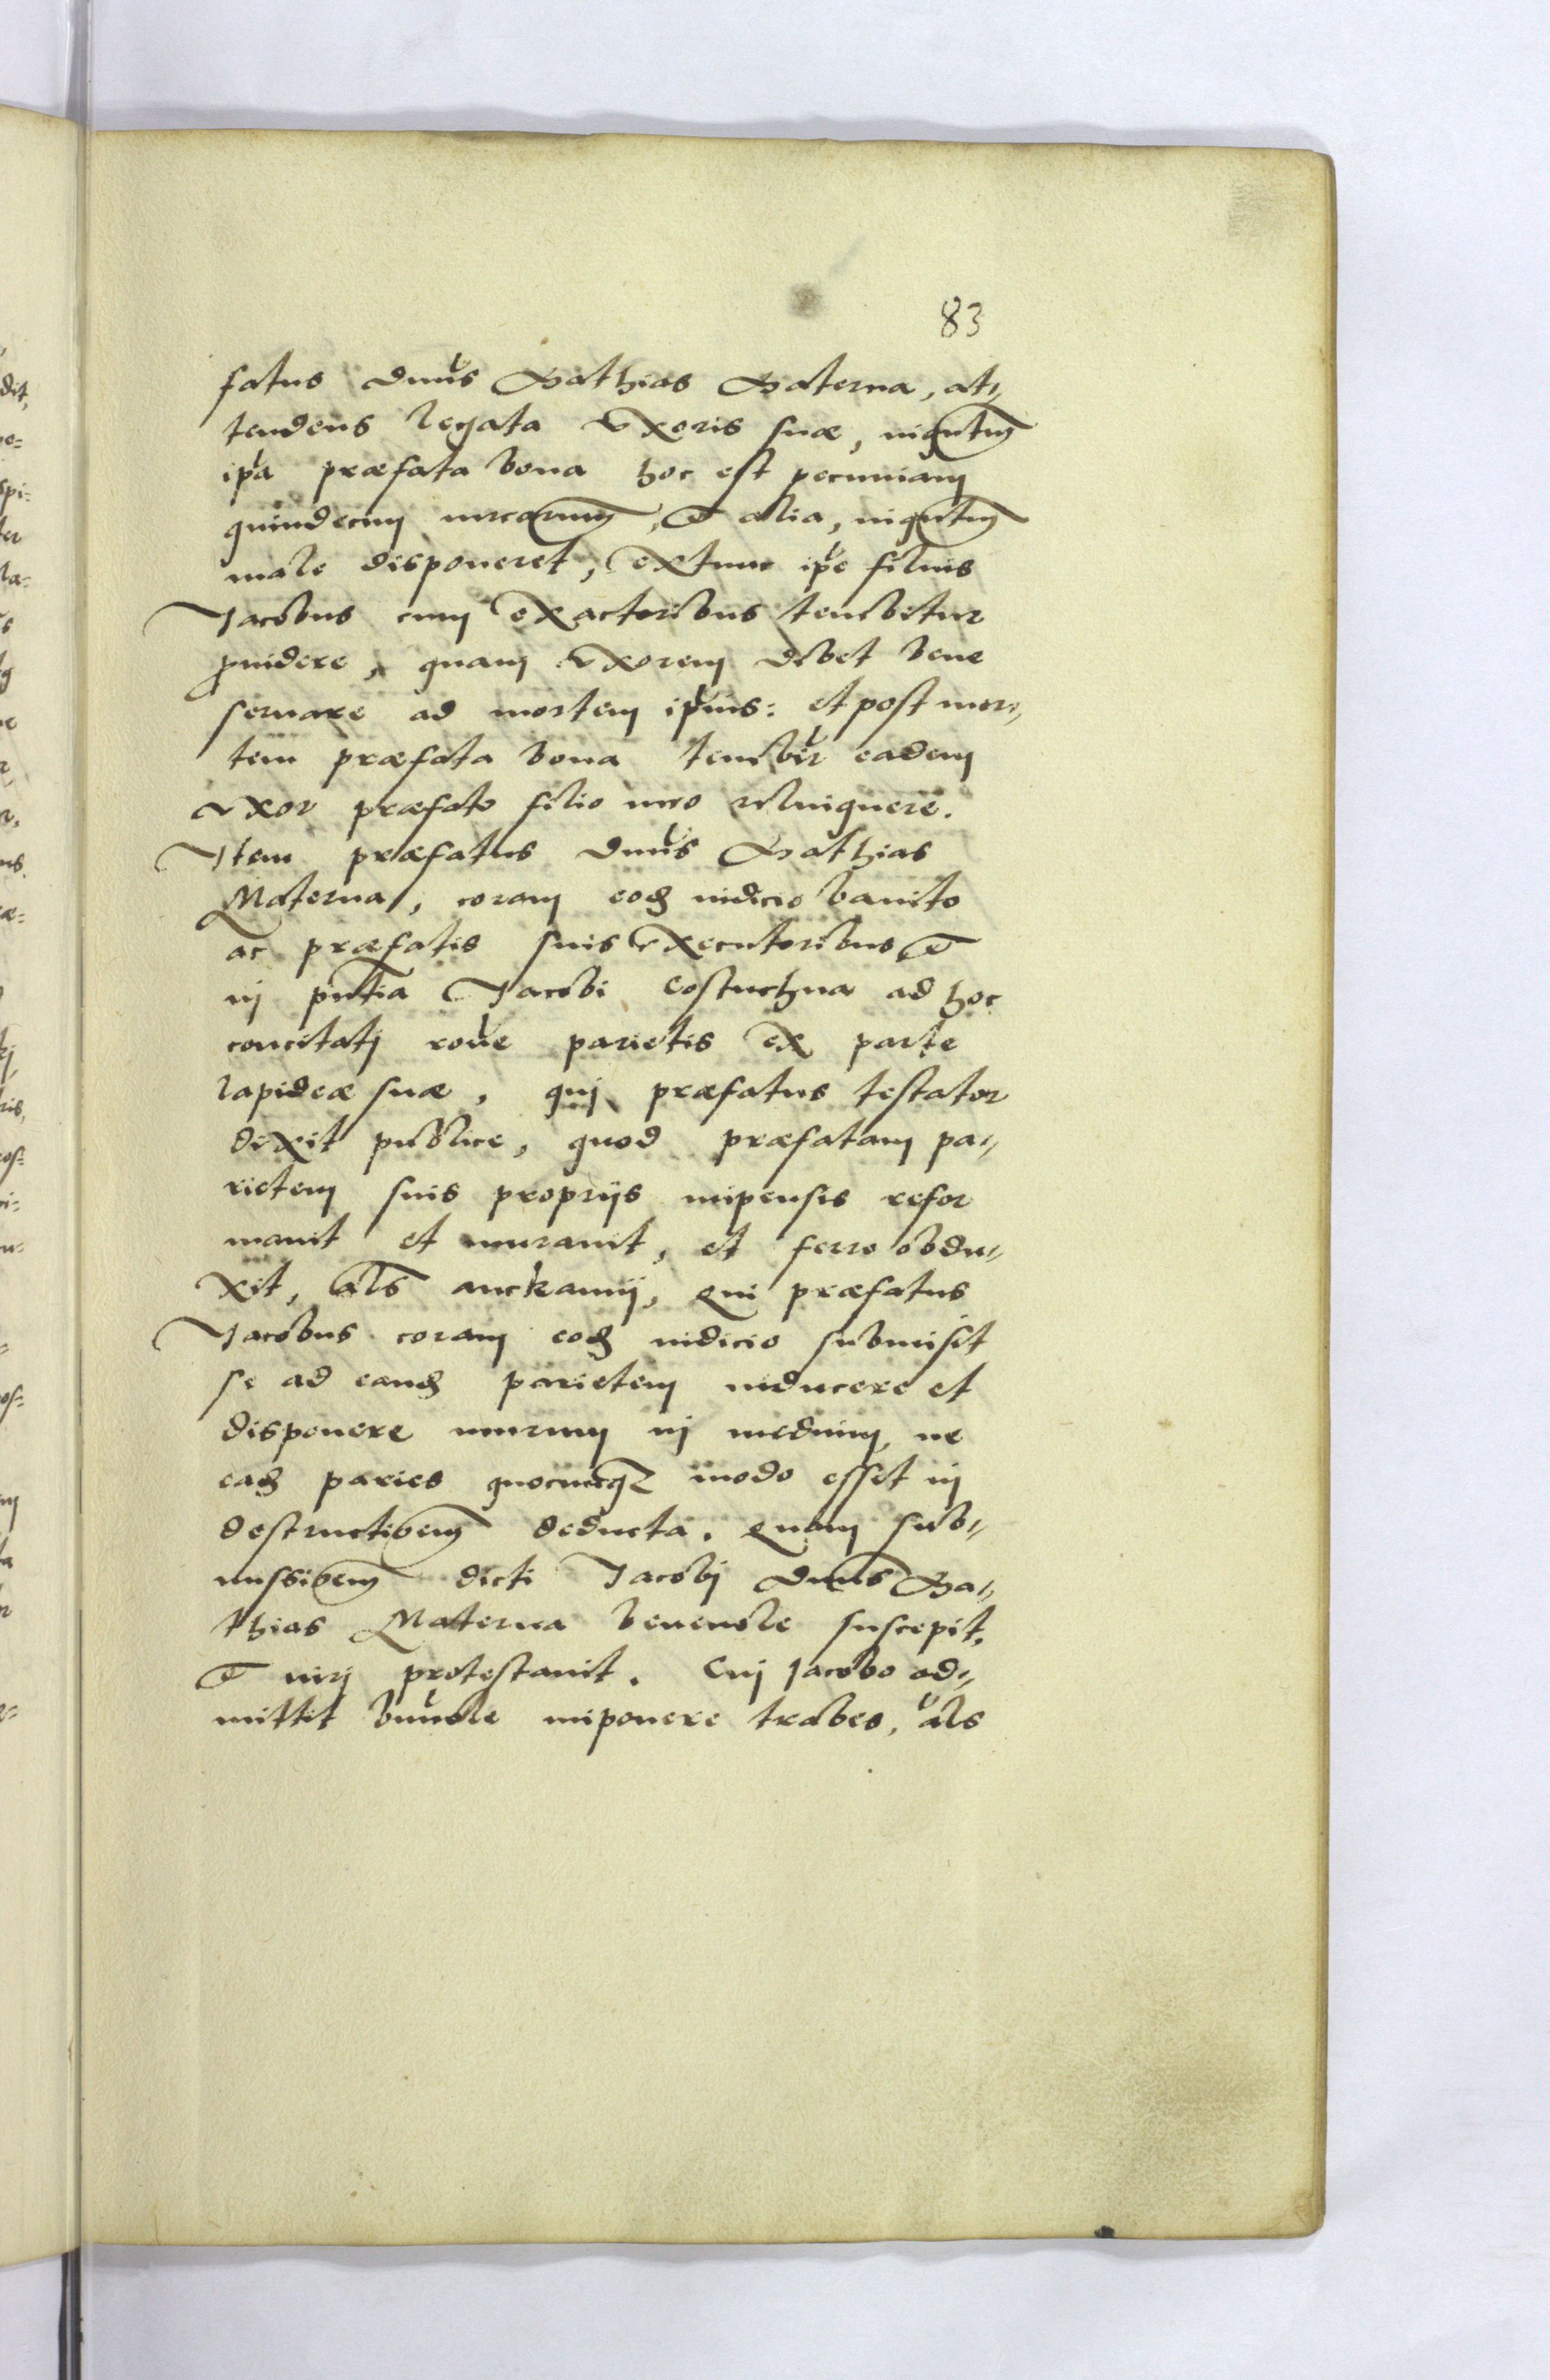 83
fatus dnus Mathias Materna, at-
tendens legata uxoris suæ, inqntm
ipa præfata bona hoc est pecuniam
quindecim mrcarum, et alia, inqntm
male disponeret, extunc ipe filius
Jacobus cum exactoribus tenebitur
puidere, quam uxorem debet bene
seruare ad mortem ipius: et post mor-
tem præfata bona tenebir eadem
uxor præfato filio meo relinquere.
Item præfatus dnus Mathias
Materna, coram eod iudicio banito
ac præfatis suis executoribus et
in pntia Jacobi Costuchna ad hoc
concitatj roue parietis ex parte
lapideæ suæ, quj præfatus testator
dixit publice, quod præfatam pa-
rietem suis proprijs impensis refor
mauit et murauit, et ferro obdu-
xit, als anckamij, Qui præfatus
Jacobus coram eod iudicio submisit
se ad eand parietem inducere et
disponere murum in medium, ne
ead paries quocumq modo esset in
destructionem deducta. Quam sub-
missionem dicti Jacobj dnus Ma-
thias Materna beneuole suscepit,
et iurj protestauit. Cuj Jacobo ad-
mittit bnuole imponere trabes, als